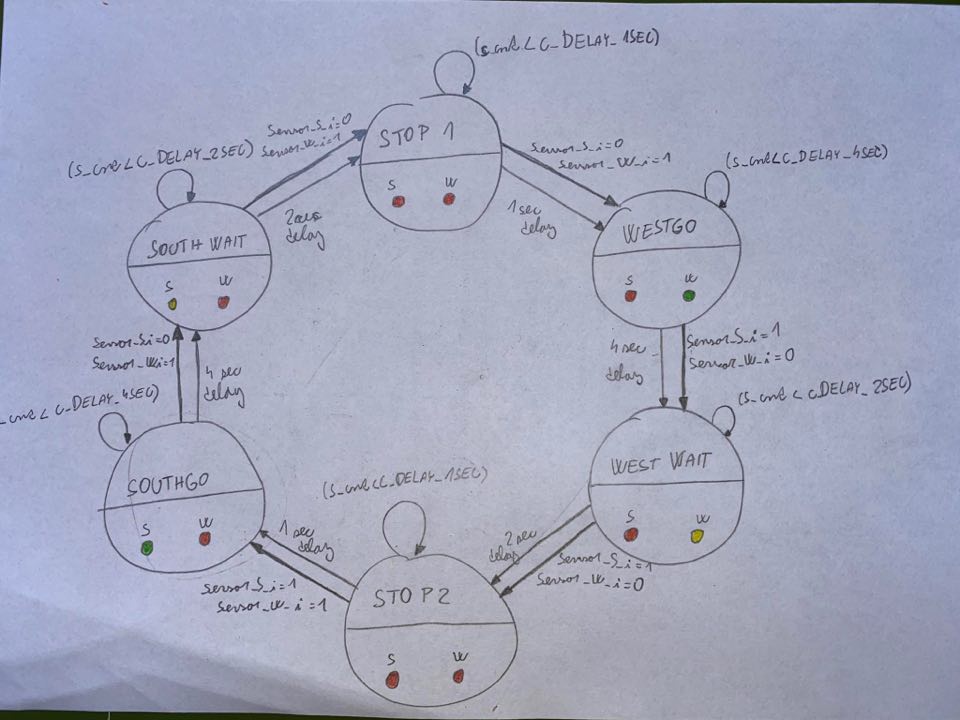 (s_cnt < C_DELAY_1SEC)
STOP 1
S W
Sensor_S_i=0
Sensor_W_i=1
2 sec
delay
Sensor_S_i=0
Sensor_W_i=1
1 sec
delay
(s_cnt < C_DELAY_4SEC)
WESTGO
S W
4 sec
delay
Sensor_S_i=1
Sensor_W_i=0
(s_cnt < C_DELAY_2SEC)
WEST WAIT
S W
2 sec
delay
Sensor_S_i=1
Sensor_W_i=0
(s_cnt < C_DELAY_1SEC)
STOP2
S W
1 sec
delay
Sensor_S_i=1
Sensor_W_i=1
_cnt < C_DELAY_4SEC)
SOUTHGO
S W
Sensor_S_i=0
Sensor_W_i=1
4 sec
delay
(s_cnt < C_DELAY_2SEC)
SOUTH WAIT
S W